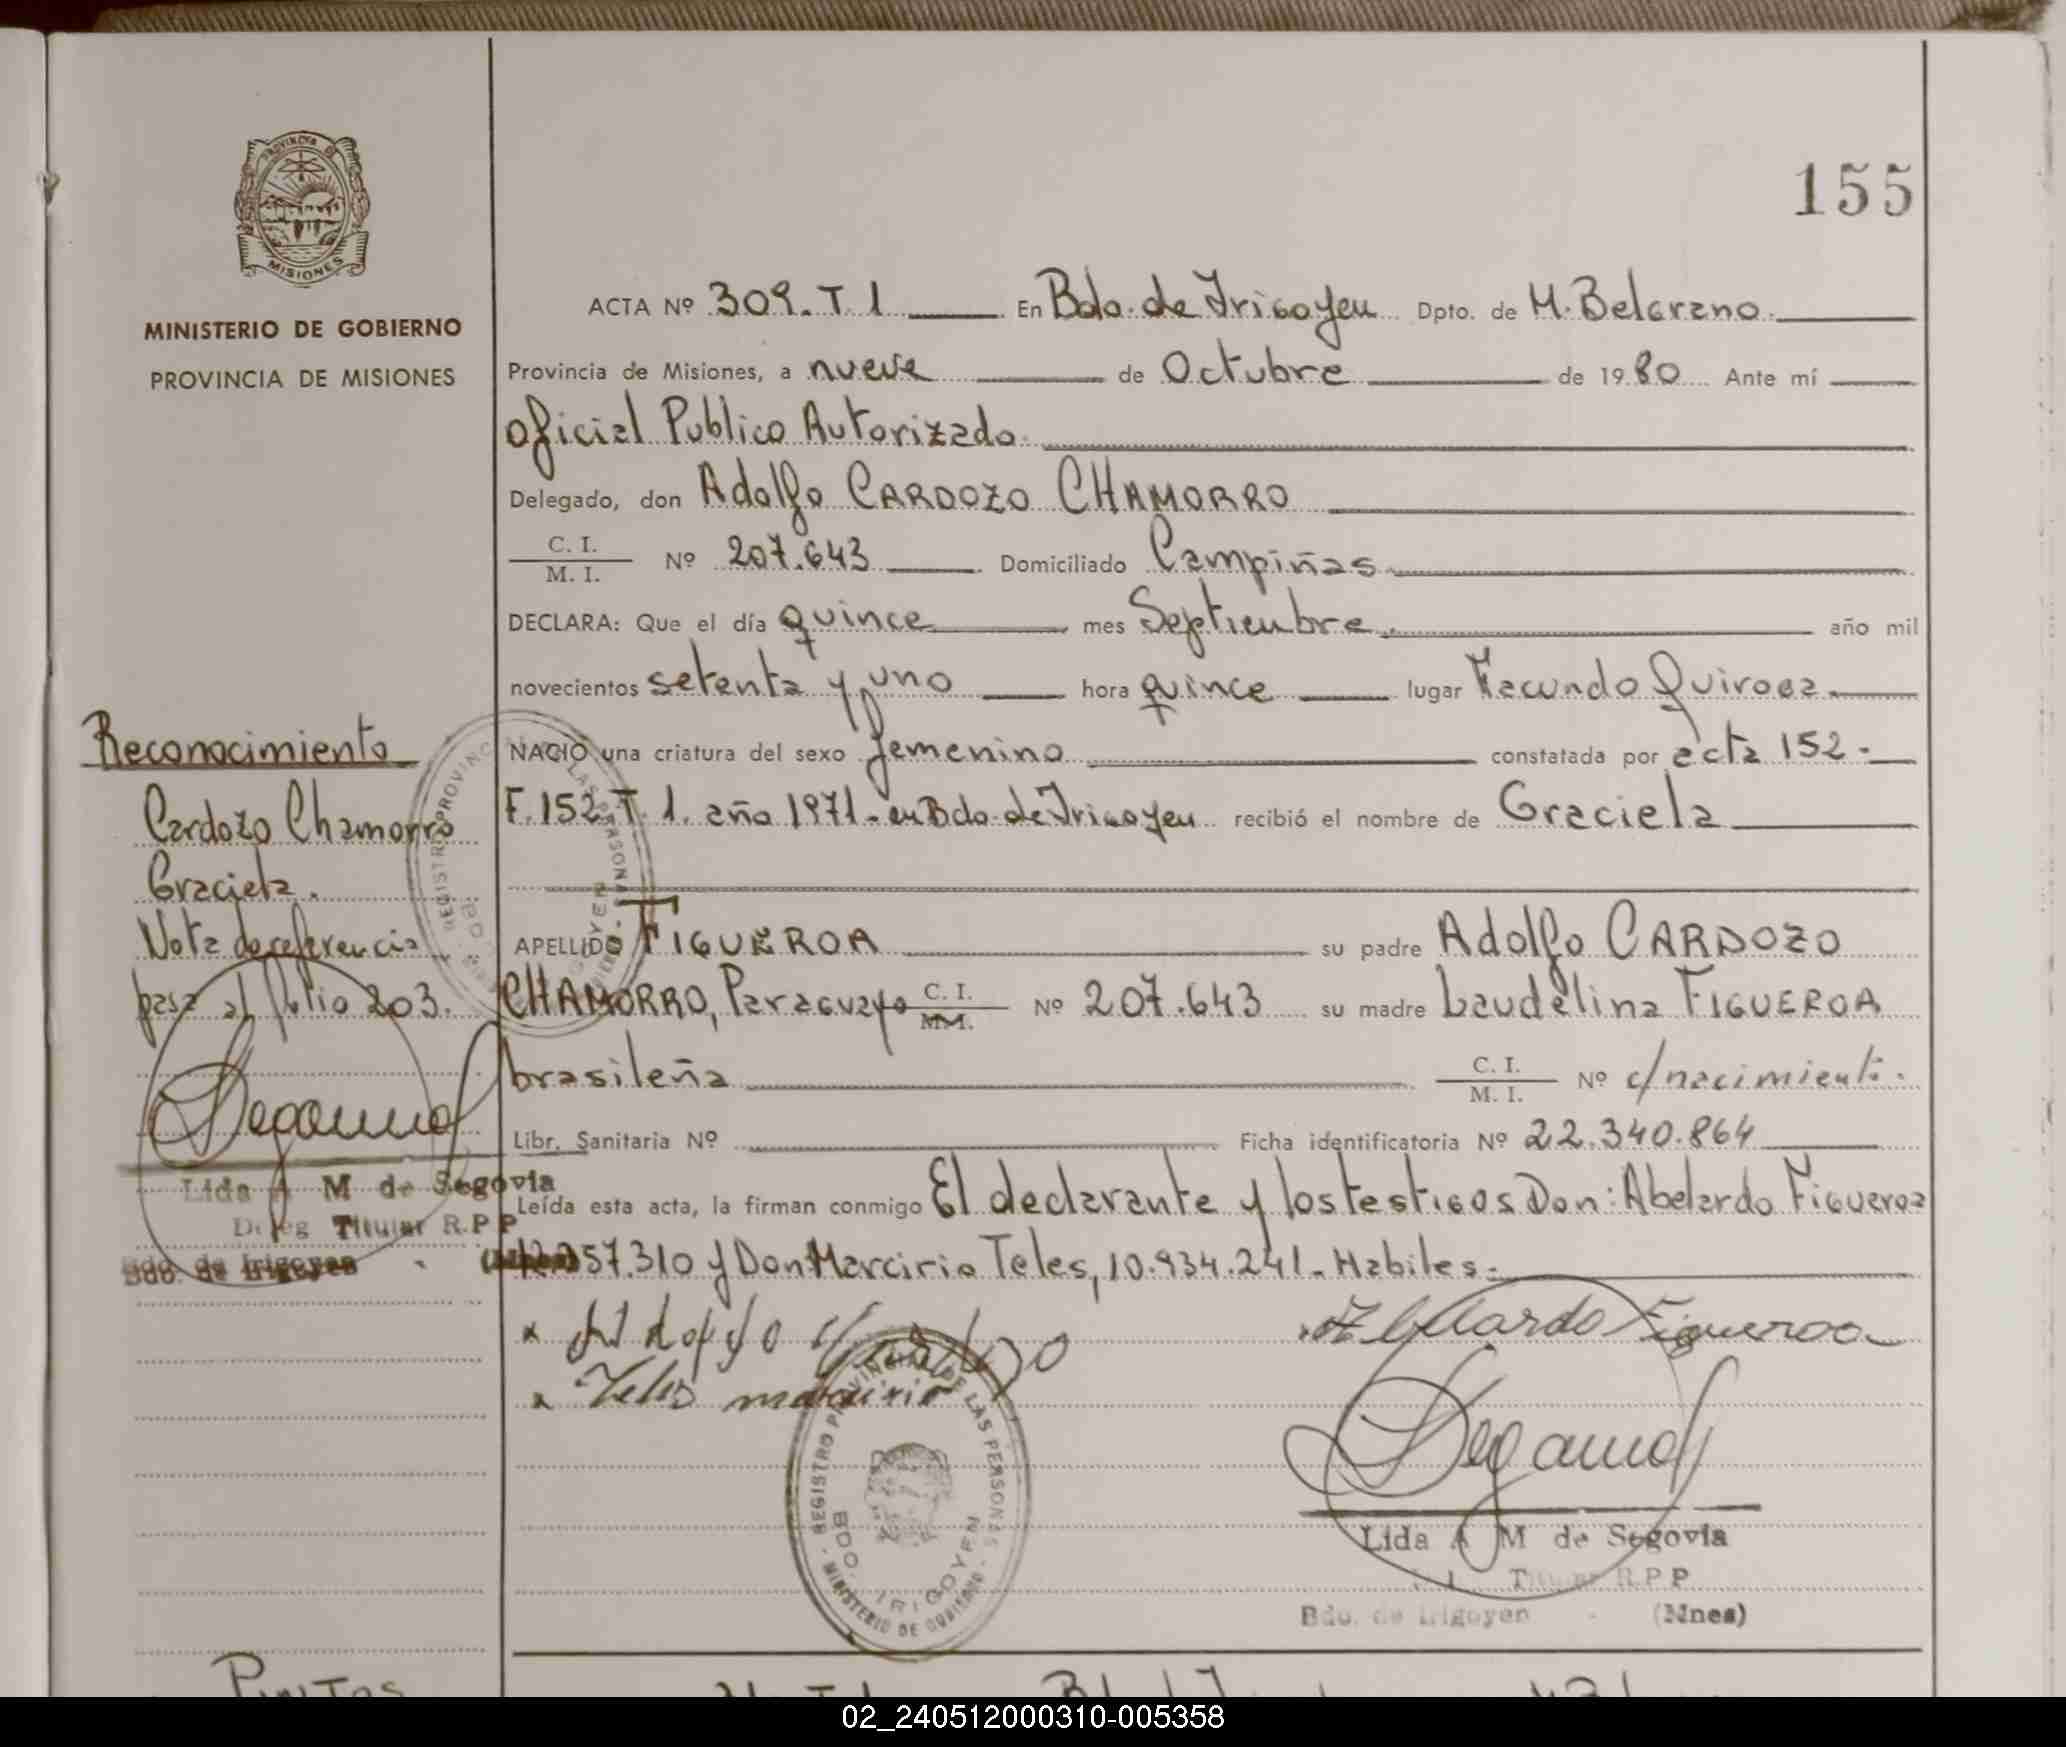 PROVINCIA DE
MISIONES
MINISTERIO DE GOBIERNO
PROVINCIA DE MISIONES
155
ACTA Nº 309. T. 1 En Bdo. de Irigoyen Dpto. de M. Belgrano.
Provincia de Misiones, a nueve de Octubre de 19 80 Ante mí
Oficial Publico Autorizado.
Delegado, don Adolfo CARDOZO CHAMORRO
C. I.
M. I.
Nº 207.643 Domiciliado Campiñas.
DECLARA: Que el día quince mes Septiembre. año mil
novecientos setenta y uno hora quince lugar Facundo Quiroga.
NACIO una criatura del sexo femenino constatada por acta 152-
F. 152. T. 1. año 1971- en Bdo. de Irigoyen recibió el nombre de Graciela
APELLIDO FIGUEROA su padre Adolfo CARDOZO
CHAMORRO, Paraguayo C. I. Nº 207.643 su madre Laudelina FIGUEROA
brasileña C. I.
M. I.
Nº c/nacimiento.
Libr. Sanitaria Nº Ficha identificatoria Nº 22.340.864
Leída esta acta, la firman conmigo El declarante y los testigos Don: Abelardo Figueroa
57.310 y Don Marcirio Teles, 10.934.241. Habiles.
Reconocimiento
Cardozo Chamorro
Graciela.
Nota de referencia
pasa al folio 203.
Lida A M de Segovia
Deleg Titular R.P P
Bdo. de Irigoyen
x Adolfo
Abelardo Figueroa
x Teles marcirio
REGISTRO PROVINCIAL DE LAS PERSONAS
BDO. IRIGOYEN
MINISTERIO DE GOBIERNO
Lida A M de Segovia
Titular R.P P
Bdo. de Irigoyen - (Mnes)
02_240512000310-005358